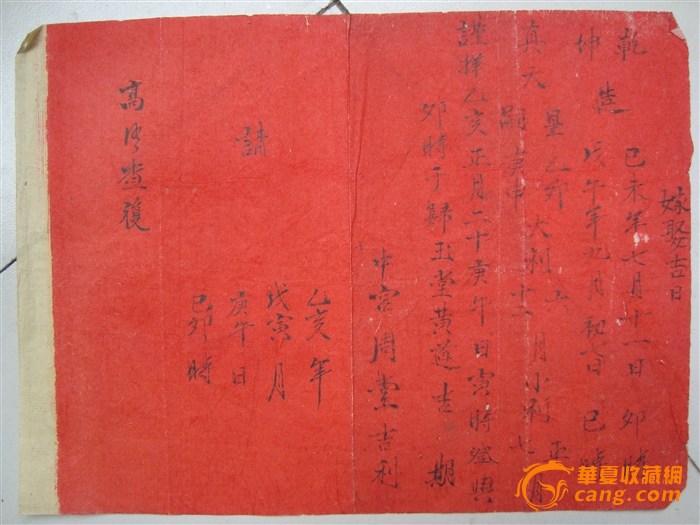 嫁娶吉日
乾 己未年七月十一日 卯時
坤造 戊午年九月初 日 巳時
星乙卯大利 六 十二 月小利 正 七 月
真天嗣庚申
謹擇乙亥正月二十庚午日寅時登輿
卯時于歸玉堂黃道吉期
中宮周堂吉利
乙亥年
戊寅月
庚午日
己卯時
請
高 查復
華夏收藏網
cang.com